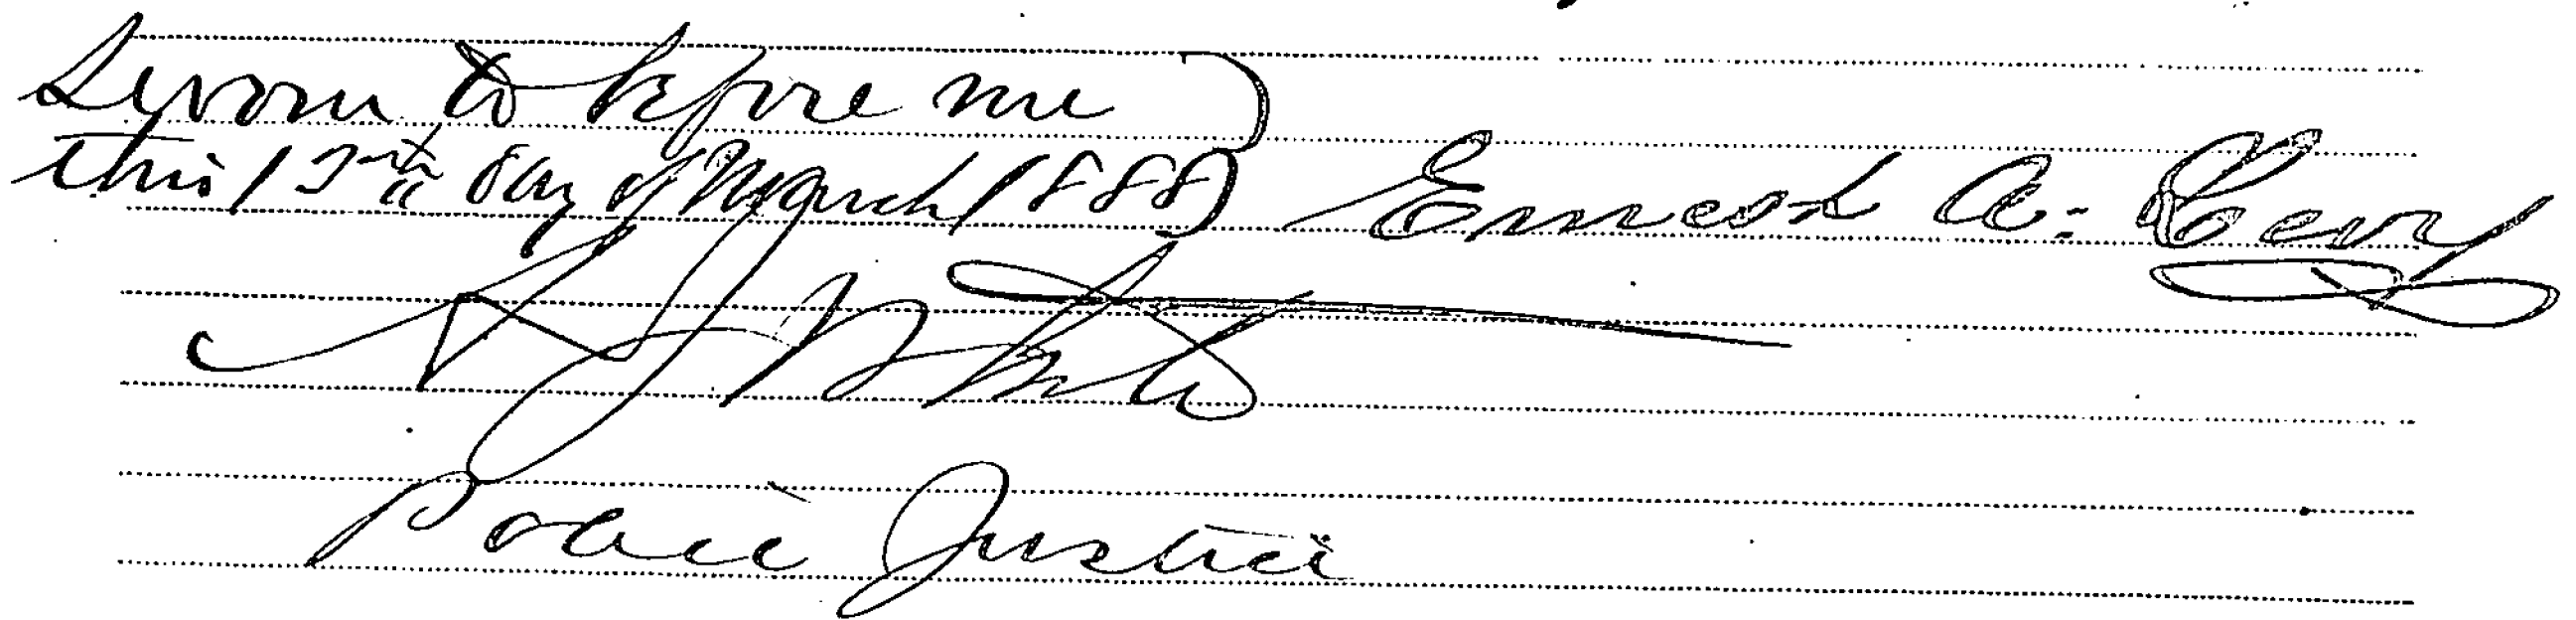 Sworn to before me
this 15th day of March 1888 Ernest A.
Police Justice